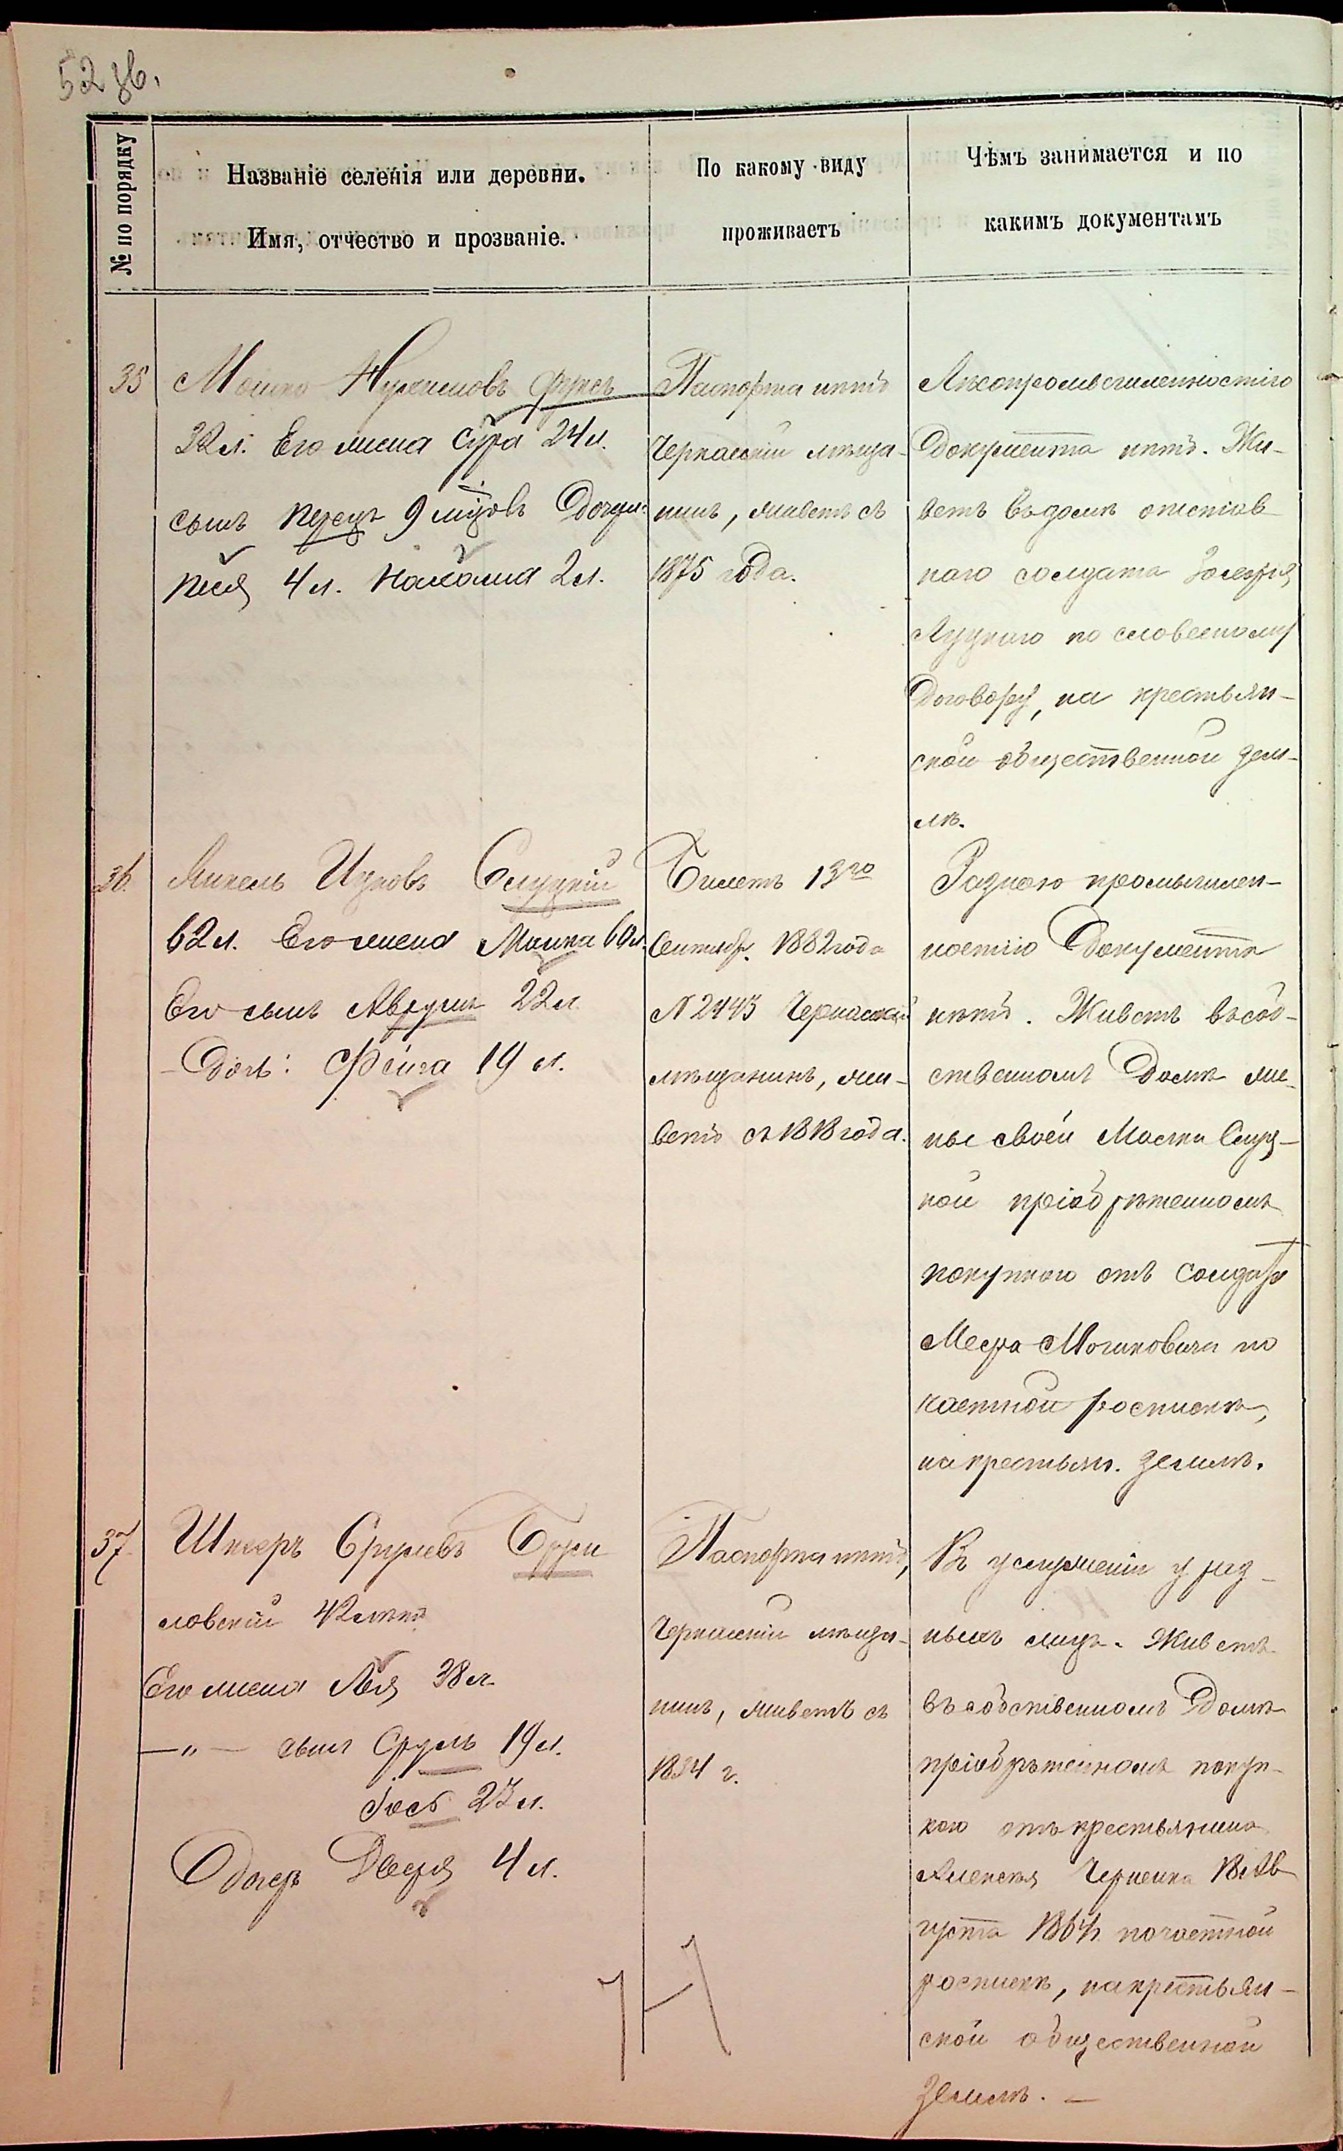 52 зв.
№ по порядку
Названіе селенія или деревни.
Имя, отчество и прозваніе.
По какому виду
проживаетъ
Чѣмъ занимается и по
какимъ документамъ
35
Мошко Нухимовъ Фуксъ
32 л. Его жена Сура 24 л.
сынъ 9 мѣсяцовъ Дочери:
4 л. Нахама 2 л.
Паспорта нѣтъ
Черкаскій мѣща-
нинъ, живетъ съ
1875 года.
документа нѣтъ. Жи-
ветъ въ домѣ отстав-
наго солдата
Луцкаго по словесному
договору, на крестьян-
ской общественной зем-
лѣ.
36.
Янкель Ицковъ Слуцкій
62 л. Его жена Маша 60 л.
Его сынъ Аврумъ 22 л.
Дочь: Фейга 19 л.
Билетъ 13го
Сентябр. 1882 года
№ 2443 Черкаскій
мѣщанинъ, жи-
ветъ съ 1818 года.
Разною промышлен-
ностію Документа
нѣтъ. Живетъ въ соб-
ственномъ домѣ же-
ны своей Слуц-
кой пріобрѣтенномъ
покупкою отъ солдата
по
частной роспискѣ,
на крестьян. землѣ.
37
Шкеръ Срулевъ Брус
ловскій 42 лѣтъ
Его жена Лея 38 л.
—"— сынъ Сруль 19 л.
Іось л.
дочерь Двейра 4 л.
Паспорта нѣтъ,
Черкаскій мѣща-
нинъ, живетъ съ
1854 г.
Въ услуженіи у раз-
ныхъ лицъ. Живетъ
въ собственномъ домѣ
пріобрѣтенномъ покуп-
кою отъ крестьянина
Алексѣя Черненка 18 Ав
густа 1864 г. по частной
роспискѣ, на крестьян-
ской общественной
землѣ. —